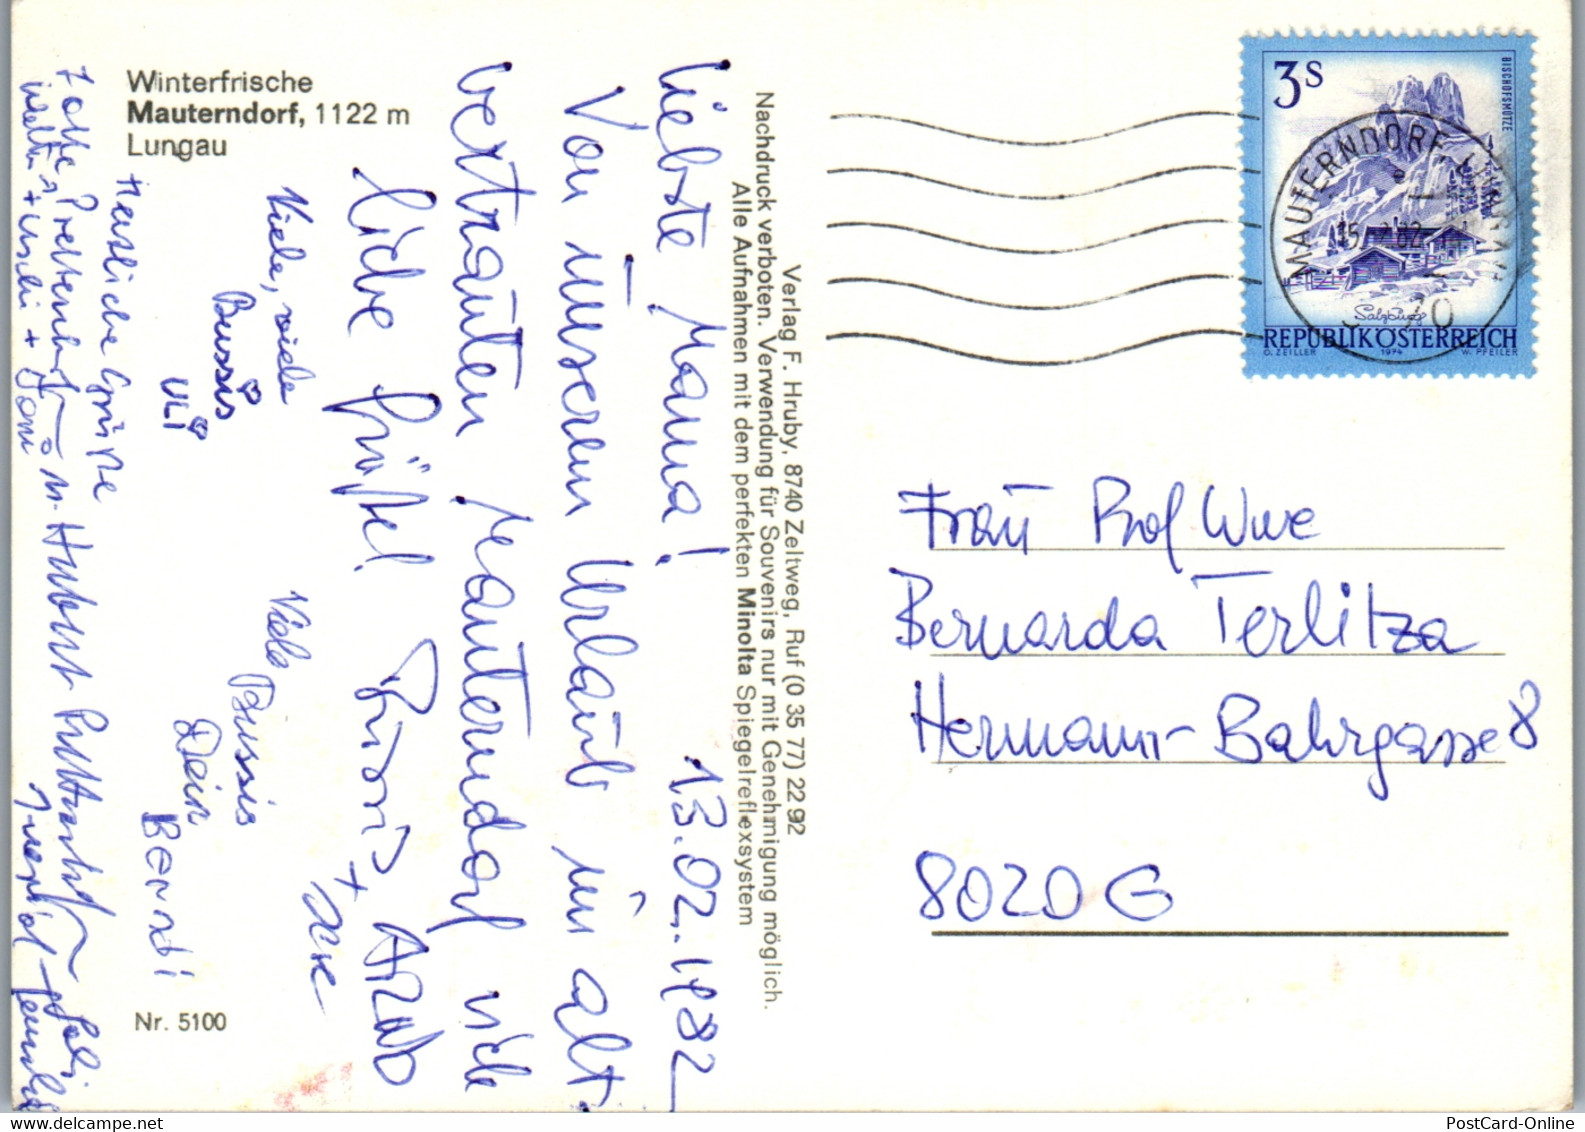 Winterfrische
Mauterndorf, 1122 m
Lungau
Liebste Mama! 13.02.1982
Von unserem Urlaub im alt
vertrauten Mauterndorf viele
liebe Grüße!
Viele, viele
Bussis
ULI
Viele Bussis
Dein
Bernd
Herzliche Grüße
Nr. 5100
Verlag F. Hruby, 8740 Zeltweg, Ruf (0 35 77) 22 92
Nachdruck verboten. Verwendung für Souvenirs nur mit Genehmigung möglich.
Alle Aufnahmen mit dem perfekten Minolta Spiegelreflexsystem
3 S
BISCHOFSMÜTZE
Salzburg
REPUBLIK ÖSTERREICH
O. ZEILLER 1974 W. PFEILER
MAUTERNDORF
Frau Prof Wwe
Bernarda Terlitza
Hermann-Bahrgasse 8
8020 G
www.delcampe.net
PostCard-Online